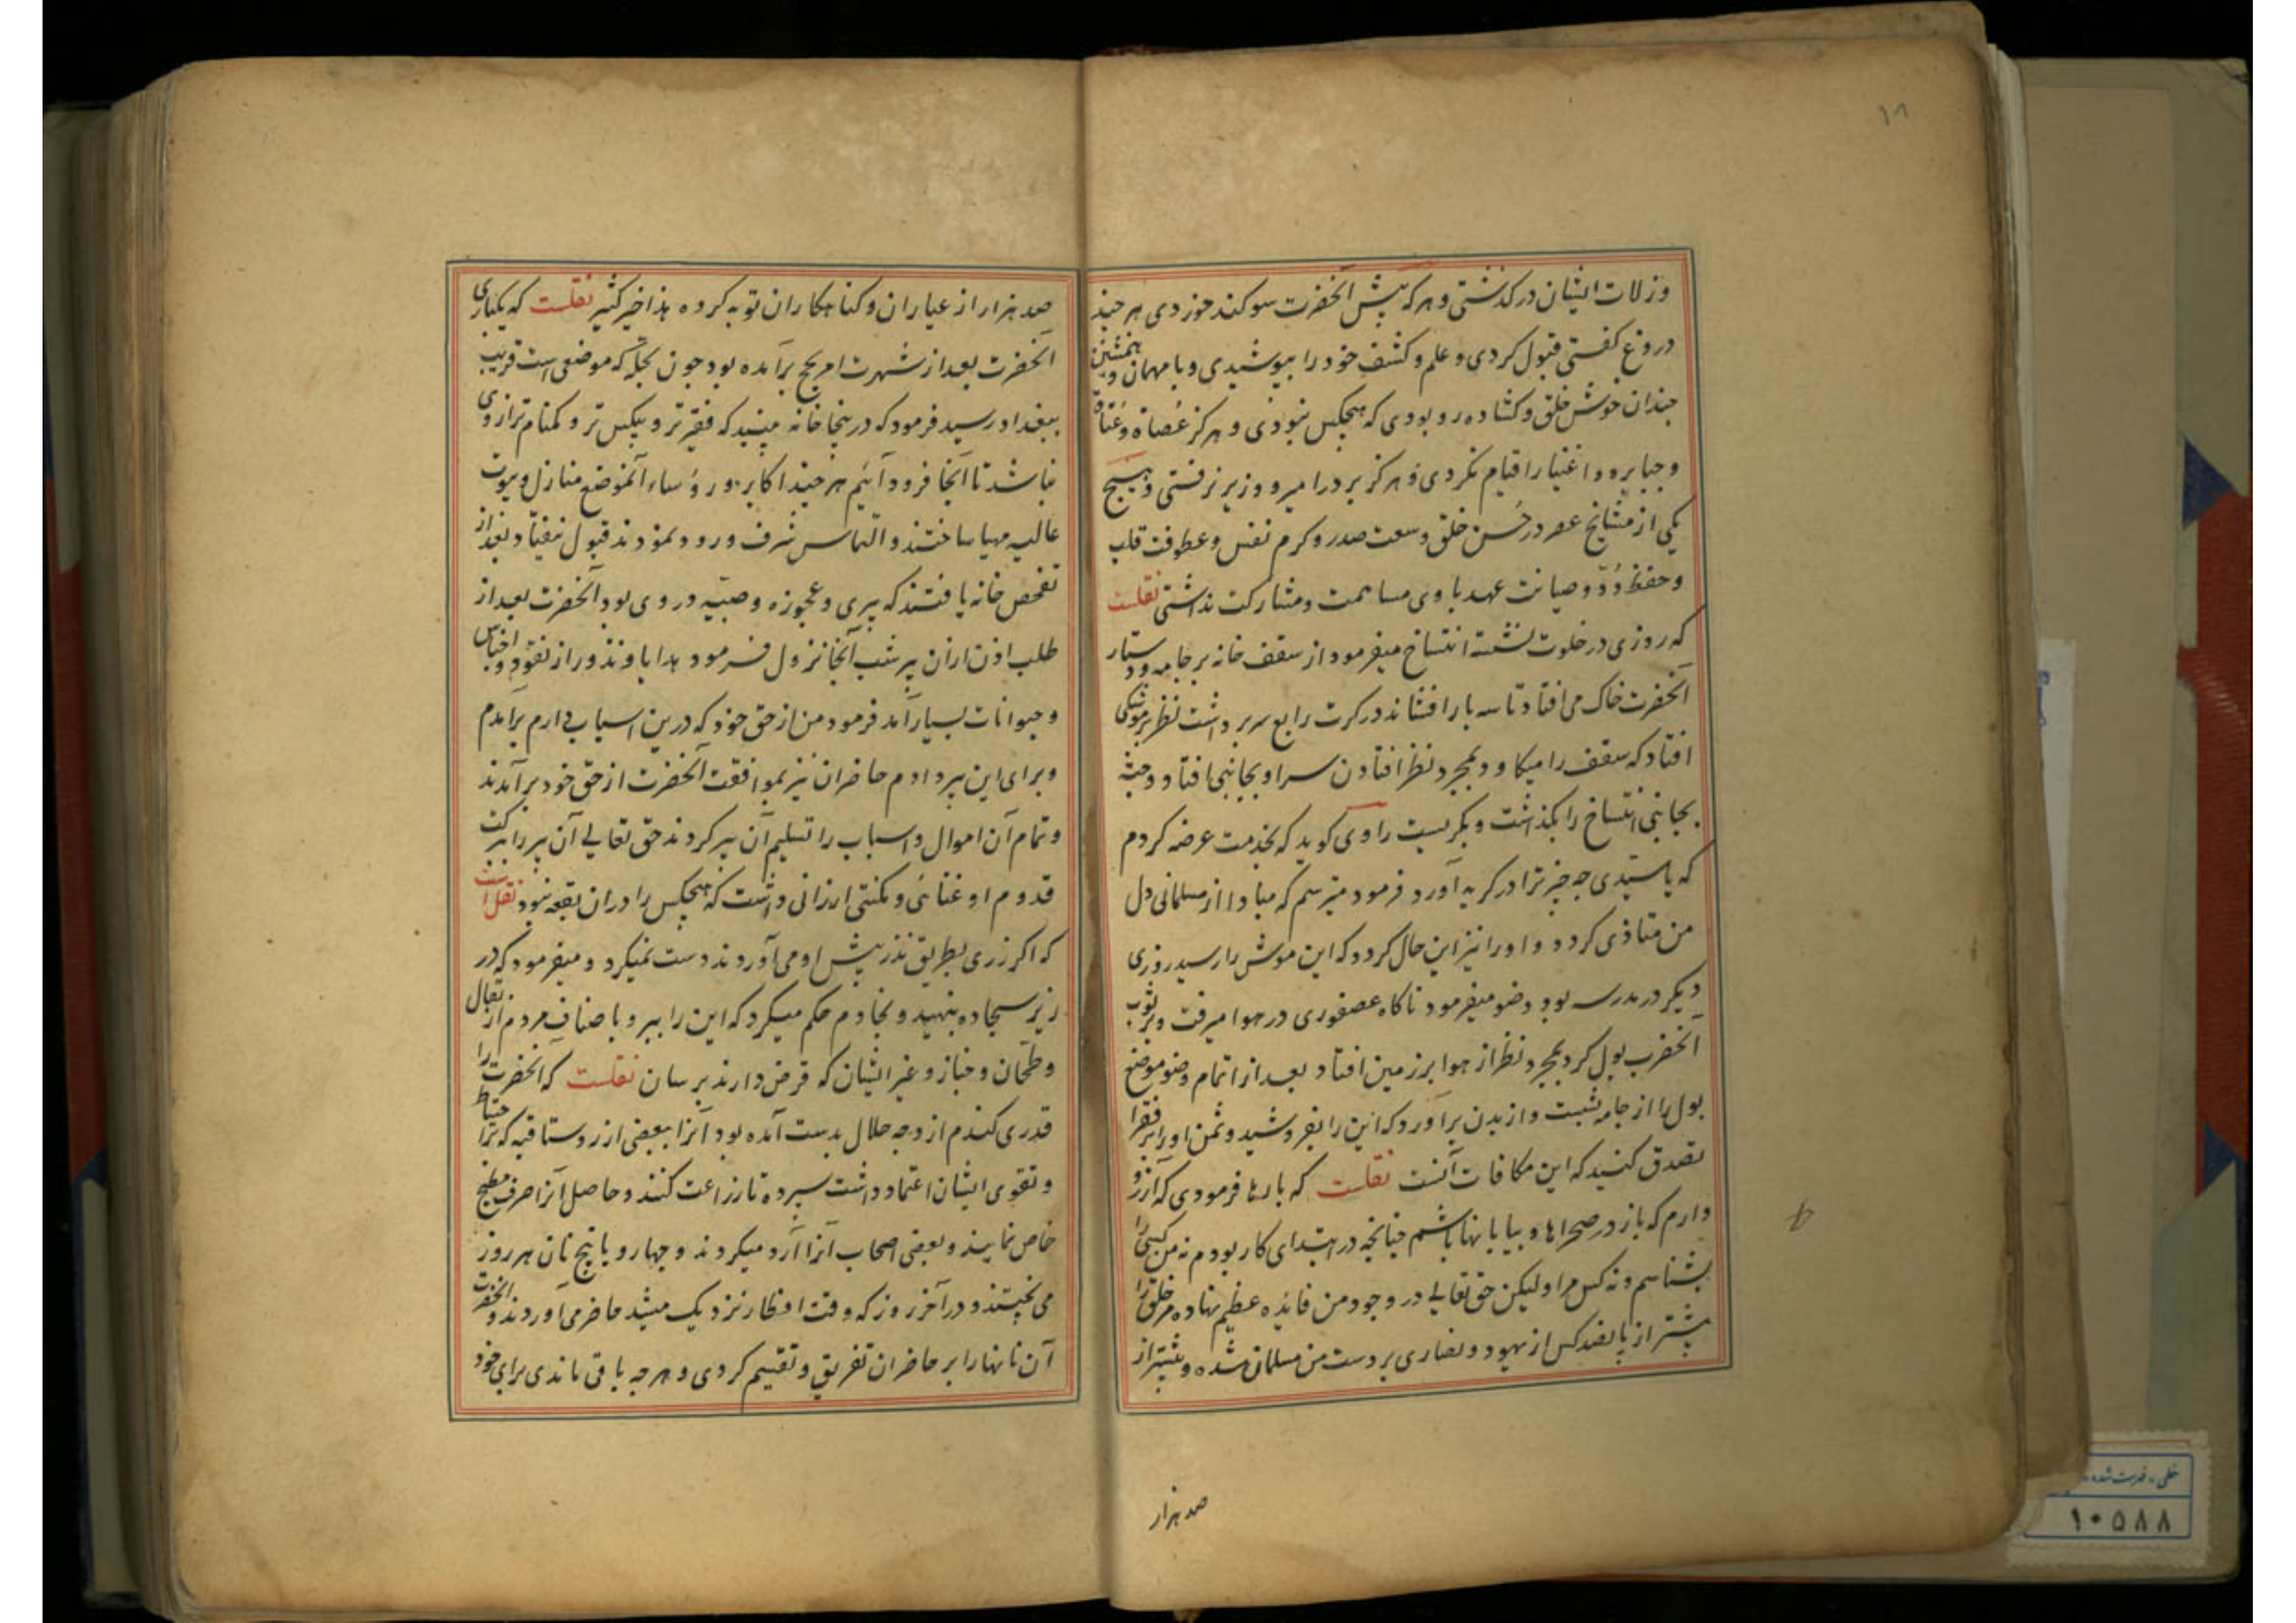 ١٨
وزلات ایشان درگذشتی و هرکه پیش آنحضرت سوکند خوردی هر چند
دروغ کفتی قبول کردی و علم و کشف خود را بپوشیدی و با مهمان و همنشین
چندان خوش خلق و کشاده رو بودی که هیچکس نبودی و هرکز عُصاة و عُتاة
و جبابره و اغنیا را قیام نکردی و هرکز بر در امیر و وزیر نرفتی و هیچ
یکی از مشایخ عصر در حُسن خلق و سعت صدر و کرم نفس و عطوفت قلب
و حفظ وُدّ و صیانت عهد با وی مساهمت و مشارکت نداشتی نقلست
که روزی در خلوت نشسته انتساخ میفرمود از سقف خانه بر جامه و دستار
آنحضرت خاک می افتاد تا سه بار افشاند در کرت رابع سر برداشت نظر بر موشکی
افتاد که سقف را میکاود بمجرد نظر افتادن سر او بجانبی افتاد و جثه
بجانبی انتساخ را بگذاشت و بکریست راوی کوید که بخدمت عرضه کردم
که یا سیّدی چه چیز ترا در کریه آورد فرمود میترسم که مبادا از مسلمانی دل
من متاذی کردد و او را نیز این حال کردد که این موش را رسید روزی
دیکر در مدرسه بود وضو میفرمود ناکاه عصفوری در هوا میرفت و بر ثوب
آنحضرت بول کرد بمجرد نظر از هوا بر زمین افتاد بعد از اتمام وضو موضع
بول را از جامه بشست و از بدن برآورد که این را بفروشید و ثمن او را بر فقرا
تصدق کنید که این مکافات آنست نقلست که بارها فرمودی که آرزو
دارم که باز در صحراها و بیابانها باشم چنانچه در ابتدای کار بودم نه من کسی را
بشناسم و نه کس مرا ولیکن حق تعالی در وجود من فایده عظیم نهاده مر خلق را
بیشتر از پانصد کس از یهود و نصاری بر دست من مسلمان شده و بیشتر از
صد هزار
صد هزار از عیاران و کناهکاران توبه کرده هذا خیر کثیر نقلست که یکباری
آنحضرت بعد از شهرت امر بحج برآمده بود چون بحله که موضعی است قریب
ببغداد رسید فرمود که درینجا خانه ببینید که فقیرتر و بیکس تر و کمنام تر از وی
نباشد تا آنجا فرود آئیم هر چند اکابر و رؤساء آنموضع منازل و بیوت
عالیه مهیا ساختند و التماس شرف ورود نمودند قبول نیفتاد بعد از
تفحص خانه یافتند که پیری و عجوزه و صبیه در وی بود آنحضرت بعد از
طلب اذن از آن پیر شب آنجا نزول فرمود هدایا و نذور از نقود و اجناس
و حیوانات بسیار آمد فرمود من از حق خود که درین اسباب دارم برآمدم
و برای این پیر دادم حاضران نیز بموافقت آنحضرت از حق خود برآمدند
و تمام آن اموال و اسباب را تسلیم آن پیر کردند حق تعالی آن پیر را ببرکت
قدوم او غنائی و مکنتی ارزانی داشت که هیچکس را دران بقعه نبود نقل است
که اکر زری بطریق نذر پیش او می آوردند دست نمیکرد و میفرمود که در
زیر سجاده بنهید و بخادم حکم میکرد که این را ببر و با صناف مردم از بقال
و طحان و خباز و غیر ایشان که قرض دارند برسان نقلست که آنحضرت را
قدری کندم از وجه حلال بدست آمده بود آنرا ببعضی از روستاقیه که بر احتیاط
و تقوی ایشان اعتماد داشت سپرده تا زراعت کنند و حاصل آنرا صرف مطبخ
خاص نمایند و بعضی اصحاب آنرا آرد میکردند و چهار و یا پنج نان هر روز
می پختند و در آخر روز که وقت افطار نزدیک میشد حاضر می آوردند و آنحضرت
آن نانها را بر حاضران تفریق و تقسیم کردی و هر چه باقی ماندی برای خود
١٠٥٨٨